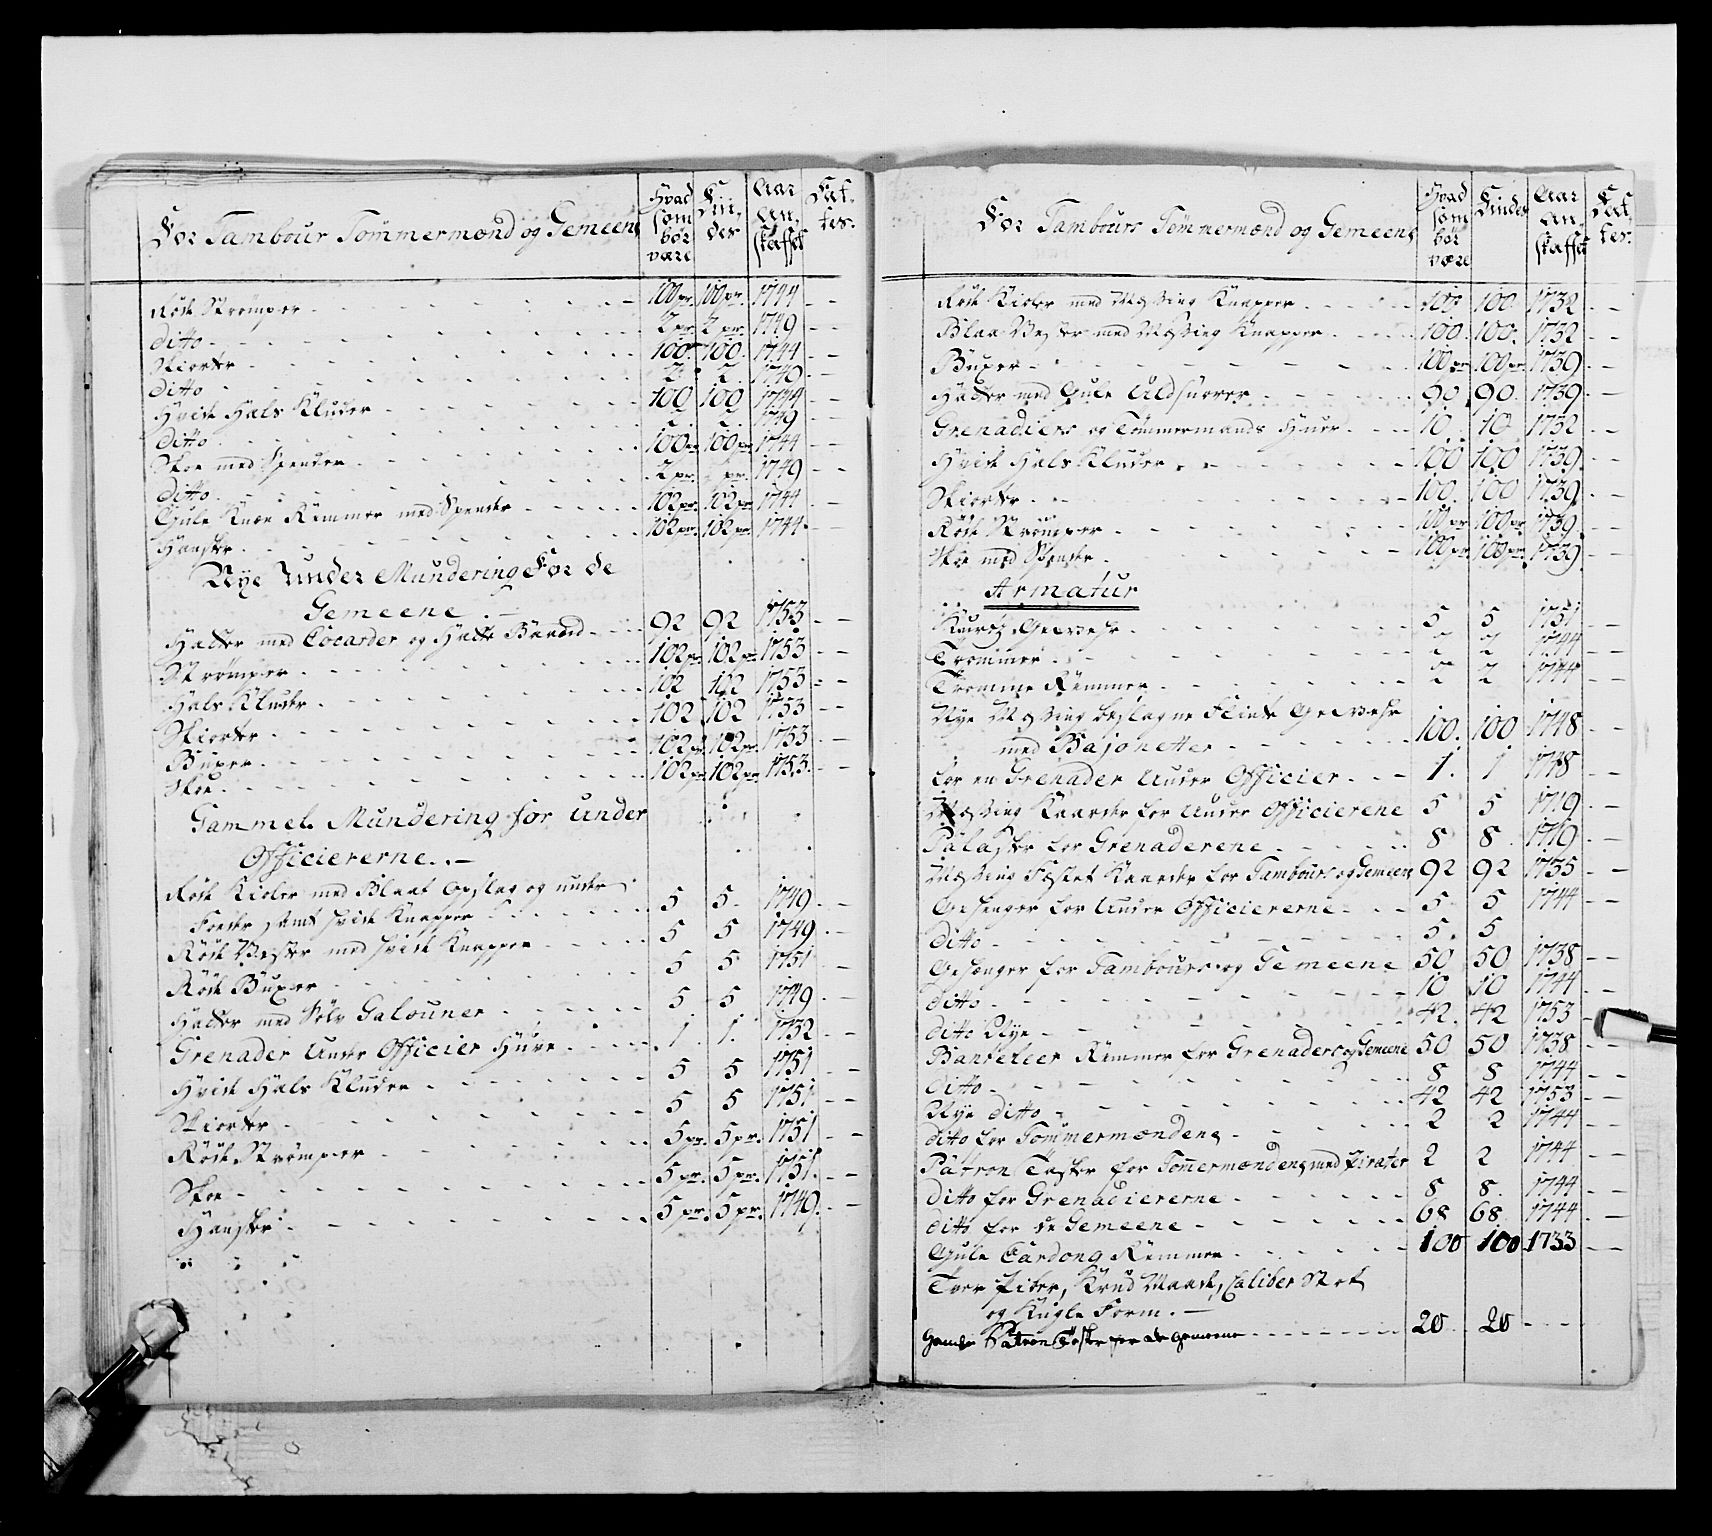 For Tambour Tømmermænd og Gemeene
Hvad som bør være
Fin, des
Aar An, skaffet
Fat, tes.
Røde Strømper 100 pr. 100 pr. 1744
Ditto 2 pr. 2 pr. 1749
Skiorter 100 100 1744
Ditto 2 2 1749
Hvide Hals Kluder 100 100 1744
Ditto 2 2 1749
Skoe med Spender 100 pr 100 pr 1744
Ditto 2 pr. pr. 1749
Gule Knæe Remmer med Spender 102 pr. 102 pr. 1744
Handsker 102 pr. 102 pr. 1744
Nye under Mundering For de
Gemeene
Hatter med Cocarder og Hatte Baand 92 92 1753
Strømper 102 pr. 102 pr. 1753
Hals Kluder 102 102 1753
Skiorter 102 102 1753
Buxer 102 pr 102 pr. 1753
Skoe 102 pr. 102 pr 1753
Gammel Mundering for under
Officiererne
Røde Kioler med Blaat Opslag og under
Foeder samt hvide Knapper 5 5 1749
Røde Vester med hvide Knapper 5 5 1749
Røde Buxer 5 5 1751
Hatter med Sølv Galouner 5 5 1749
Grenader Under Officier Huve 1 1 1732
Hvide Hals Kluder 5 5 1751
Skiorter 5 5 1751
Røde Strømper 5 pr. 5 pr. 1751
Skoe 5 pr. 5 pr. 1751
Handsker 5 pr. 5 pr. 1749
For Tambours Tømmermænd og Gemeene
Hvad som bør være
Findes
Aar An, skaffet
Fat, tes.
Røde Kioler med Mæssing Knapper 100 100 1732
Blaa Vester med Mæssing Knapper 100 100 1732
Buxer 100 pr 100 pr 1739
Hatter med Gule Uldsnorer 90 90 1739
Grenadiers og Tømmermands Huer 10 10 1732
Hvide Hals Kluder 100 100 1739
Skiorter 100 100 1739
Røde Strømper 100 pr 100 pr 1739
Skoe med Spender 100 pr 100 pr 1739
Armatur
Kaartz Gevehr 5 5 1751
Trommer 2 2 1744
Tromme Remmer 2 2 1744
Nye Mæssing beslagne Flinte Gevehr
med Bajonetter 100 100 1748
for en Grenader Under Officier 1 1 1748
Mæssing Kaarder for Under Officierene 5 5 1719
Palasker for Grenaderene 8 8 1719
Mæssing Fæstet Kaarder for Tambours og Gemeene 92 92 1735
Gehenger for Under Officiererne 5 5 1744
Ditto 5 5
Gehenger for Tambours og Gemeene 50 50 1738
Ditto 10 10 1744
Ditto Nye 42 42 1753
Bandeleer Remmer for Grenaders og Gemeene 50 50 1738
Ditto 8 8 1744
Nye Ditto 42 42 1753
Ditto for Tømmermændene 2 2 1744
Patron Tasker for Tømmermændene med Pirater 2 2 1744
Ditto for Grenadiererne 8 8 1744
Ditto for de Gemeene 68 68 1744
Gule Cardong Remmer 100 100 1733
Caliber Stok
og Kugle Form.
Gamle Patron Taske for de gemeene 20 20